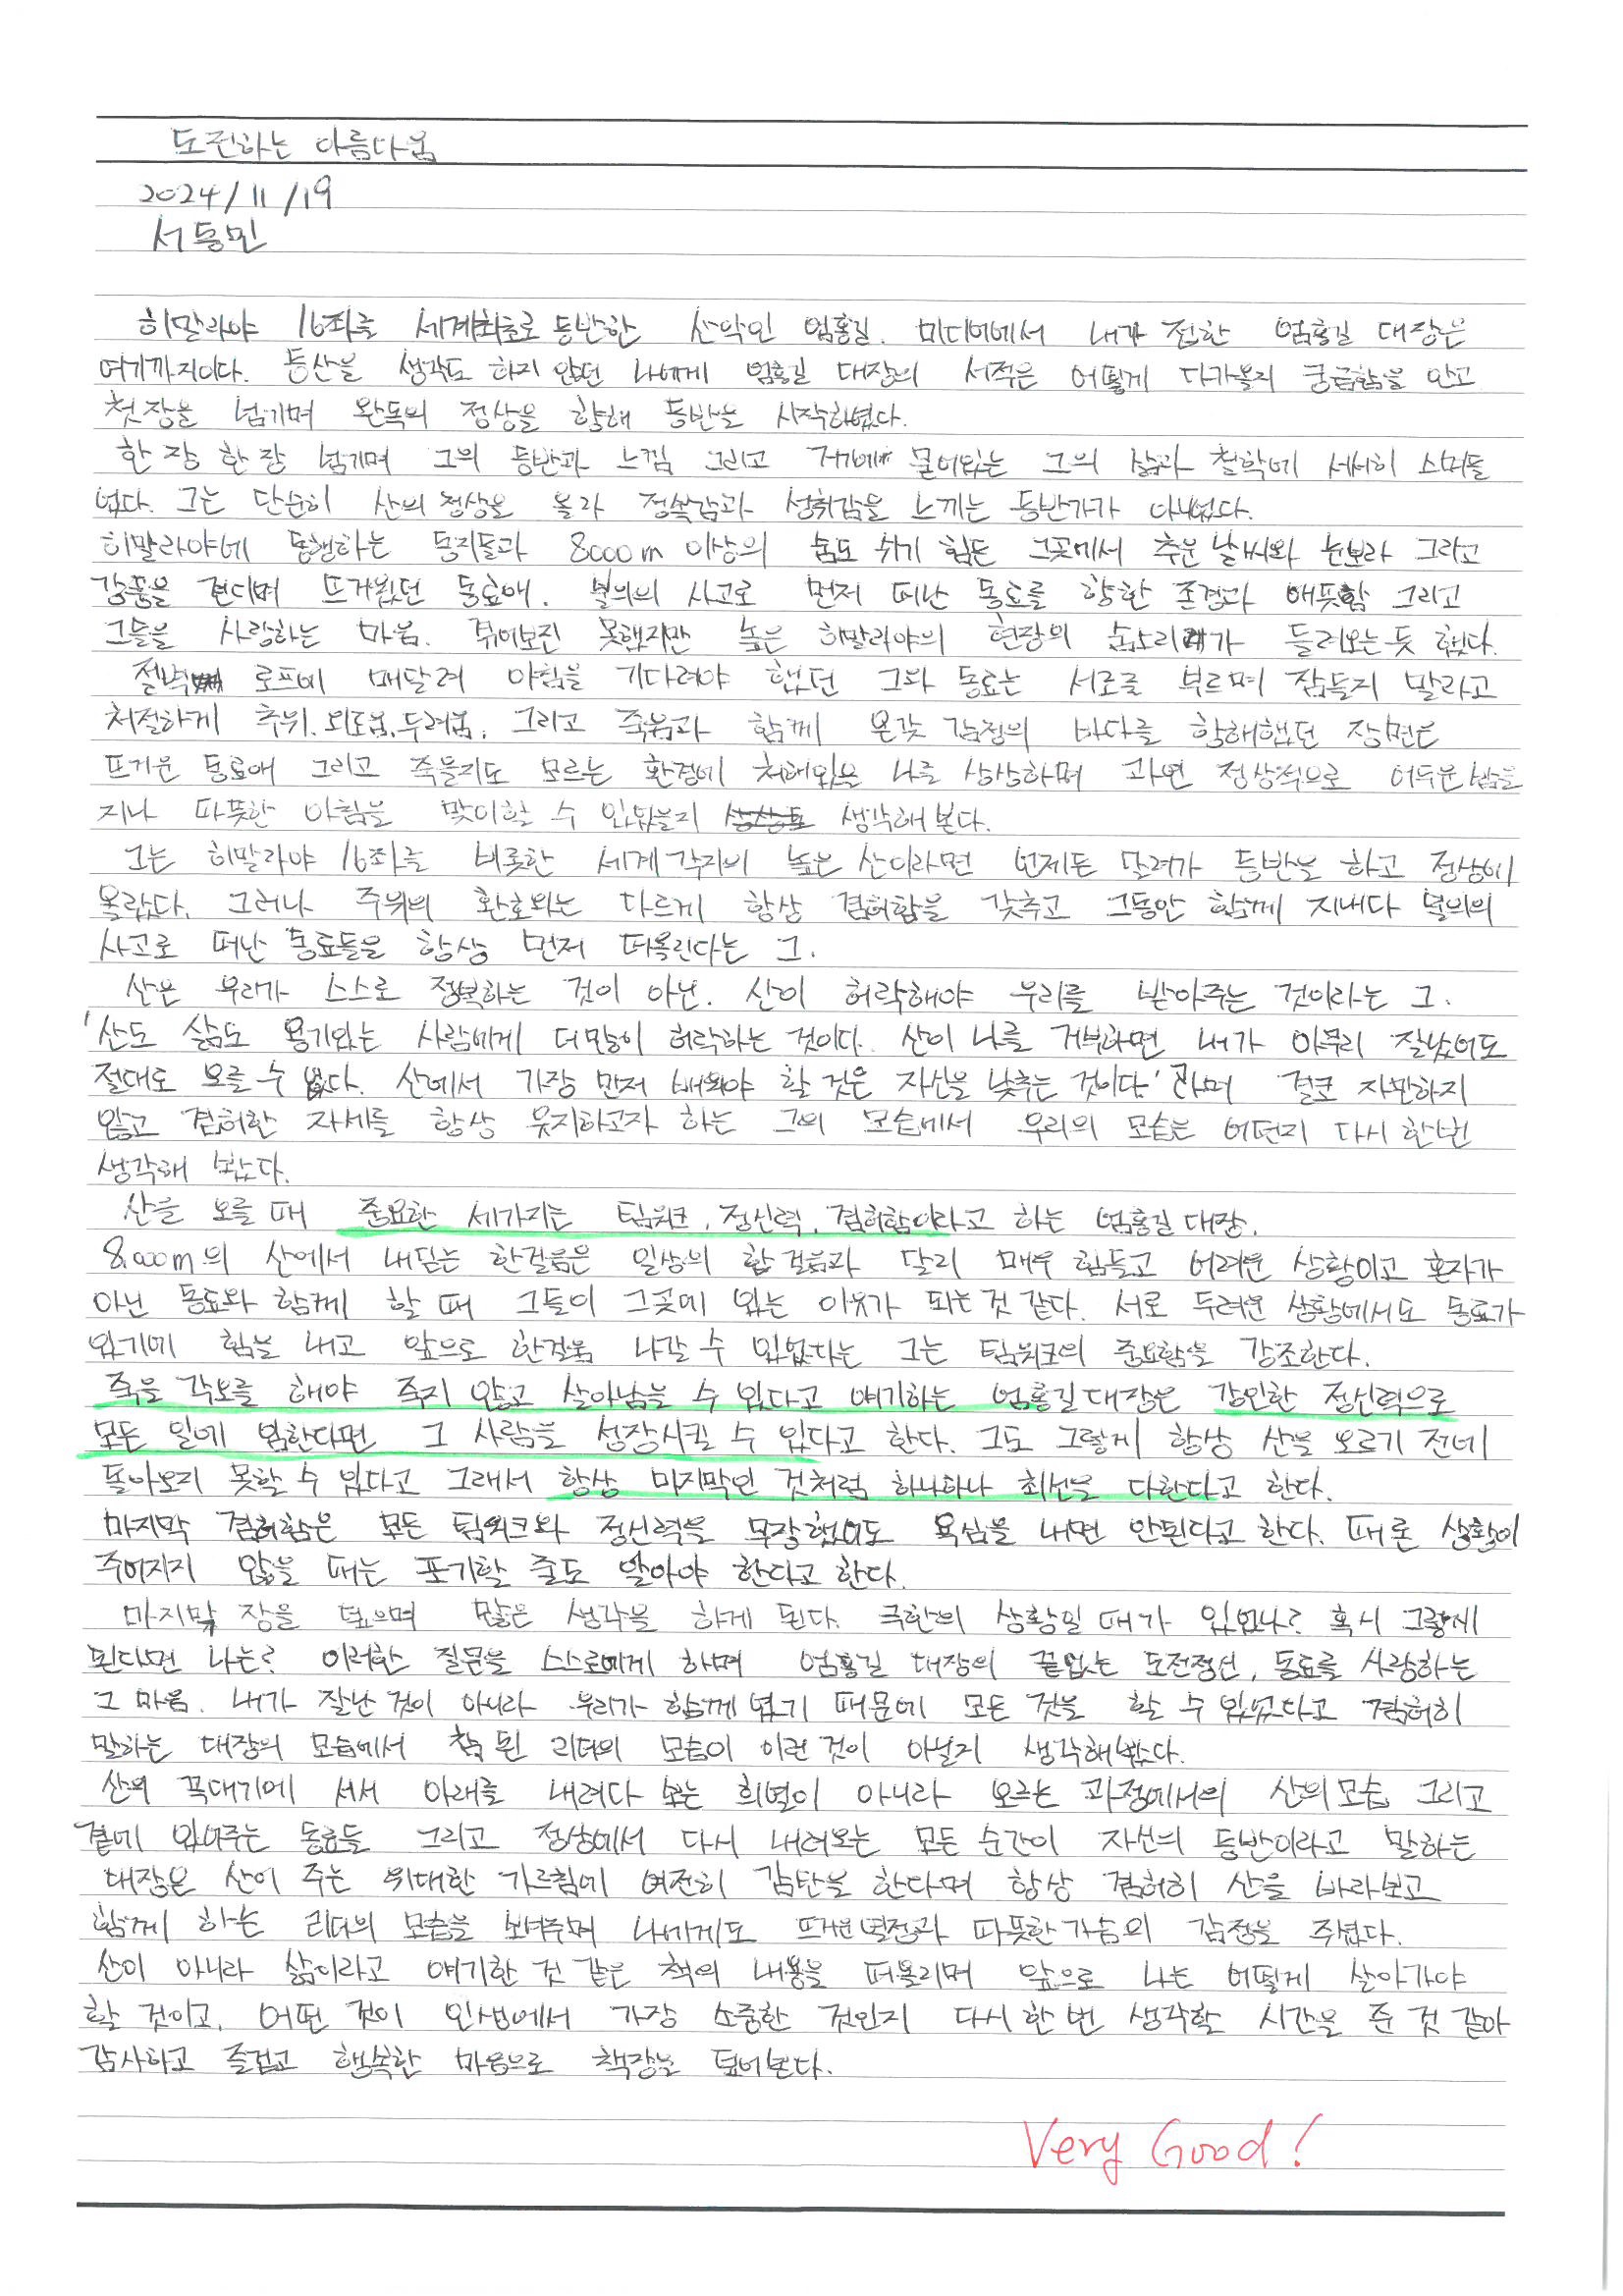 도전하는 아름다움
2024/11/19
서동민
히말라야 16좌를 세계최초로 등반한 산악인 엄홍길. 미디어에서 내가 접한 엄홍길 대장은
여기까지이다. 등산을 생각도 하지 않던 나에게 엄홍길 대장의 서적은 어떻게 다가올지 궁금함을 안고
첫장을 넘기며 완독의 정상을 향해 등반을 시작하였다.
한 장 한 장 넘기며 그의 등반과 느낌 그리고 거기에 묻어있는 그의 삶과 철학에 서서히 스며들
었다. 그는 단순히 산의 정상을 올라 정복감과 성취감을 느끼는 등반가가 아니었다.
히말라야에 동행하는 동지들과 8000m 이상의 숨도 쉬기 힘든 그곳에서 추운 날씨와 눈보라 그리고
강풍을 견디며 뜨거웠던 동료애. 불의의 사고로 먼저 떠난 동료를 향한 존경과 애틋함 그리고
그들을 사랑하는 마음. 뛰어보진 못했지만 높은 히말라야의 현장의 숨소리가 들려오는 듯 했다.
절벽 로프에 매달려 아침을 기다려야 했던 그와 동료는 서로를 부르며 잠들지 말라고
처절하게 추위.외로움.두려움. 그리고 죽음과 함께 온갖 감정의 바다를 항해했던 장면은
뜨거운 동료애 그리고 죽을지도 모르는 환경에 처해있을 나를 상상하며 과연 정상적으로 어두운 밤을
지나 따뜻한 아침을 맞이할 수 있었을지 생각해 본다.
그는 히말라야 16좌를 비롯한 세계 각지의 높은 산이라면 언제든 달려가 등반을 하고 정상에
올랐다. 그러나 주위의 환호와는 다르게 항상 겸허함을 갖추고 그동안 함께 지내다 불의의
사고로 떠난 동료들을 항상 먼저 떠올린다는 그.
산은 우리가 스스로 정복하는 것이 아닌. 산이 허락해야 우리를 받아주는 것이라는 그.
'산도 삶도 용기있는 사람에게 더 많이 허락하는 것이다. 산이 나를 거부하면 내가 아무리 잘났어도
절대도 오를 수 없다. 산에서 가장 먼저 배워야 할 것은 자신을 낮추는 것이다' 라며 결코 자만하지
않고 겸허한 자세를 항상 유지하고자 하는 그의 모습에서 우리의 모습은 어떤지 다시 한번
생각해 봤다.
산을 오를 때 중요한 세가지는 팀워크, 정신력, 겸허함이라고 하는 엄홍길 대장.
8,000m의 산에서 내딛는 한걸음은 일상의 한 걸음과 달리 매우 힘들고 어려운 상황이고 혼자가
아닌 동료와 함께 할 때 그들이 그곳에 있는 이유가 되는 것 같다. 서로 두려운 상황에서도 동료가
있기에 힘을 내고 앞으로 한걸음 나갈 수 있었다는 그는 팀워크의 중요함을 강조한다.
죽을 각오를 해야 죽지 않고 살아남을 수 있다고 얘기하는 엄홍길 대장은 강인한 정신력으로
모든 일에 임한다면 그 사람을 성장시킬 수 있다고 한다. 그도 그렇게 항상 산을 오르기 전에
돌아오지 못할 수 있다고 그래서 항상 마지막인 것처럼 하나하나 최선을 다한다고 한다.
마지막 겸허함은 모든 팀워크와 정신력을 무장했어도 욕심을 내면 안된다고 한다. 때론 상황이
주어지지 않을 때는 포기할 줄도 알아야 한다고 한다.
마지막 장을 덮으며 많은 생각을 하게 된다. 극한의 상황일 때가 있었나? 혹시 그렇게
된다면 나는? 이러한 질문을 스스로에게 하며 엄홍길 대장의 끝없는 도전정신, 동료를 사랑하는
그 마음. 내가 잘난 것이 아니라 우리가 함께 였기 때문에 모든 것을 할 수 있었다고 겸허히
말하는 대장의 모습에서 참 된 리더의 모습이 이런 것이 아닐지 생각해봤다.
산의 꼭대기에 서서 아래를 내려다 보는 희열이 아니라 오르는 과정에서의 산의 모습 그리고
곁에 있어주는 동료들 그리고 정상에서 다시 내려오는 모든 순간이 자신의 등반이라고 말하는
대장은 산이 주는 위대한 가르침에 여전히 감탄을 한다며 항상 겸허히 산을 바라보고
함께 하는 리더의 모습을 보여주며 나에게도 뜨거운 열정과 따뜻한 가슴의 감정을 주었다.
산이 아니라 삶이라고 얘기한 것 같은 책의 내용을 떠올리며 앞으로 나는 어떻게 살아가야
할 것이고, 어떤 것이 인생에서 가장 소중한 것인지 다시 한 번 생각할 시간을 준 것 같아
감사하고 즐겁고 행복한 마음으로 책장을 덮어본다.
Very Good!